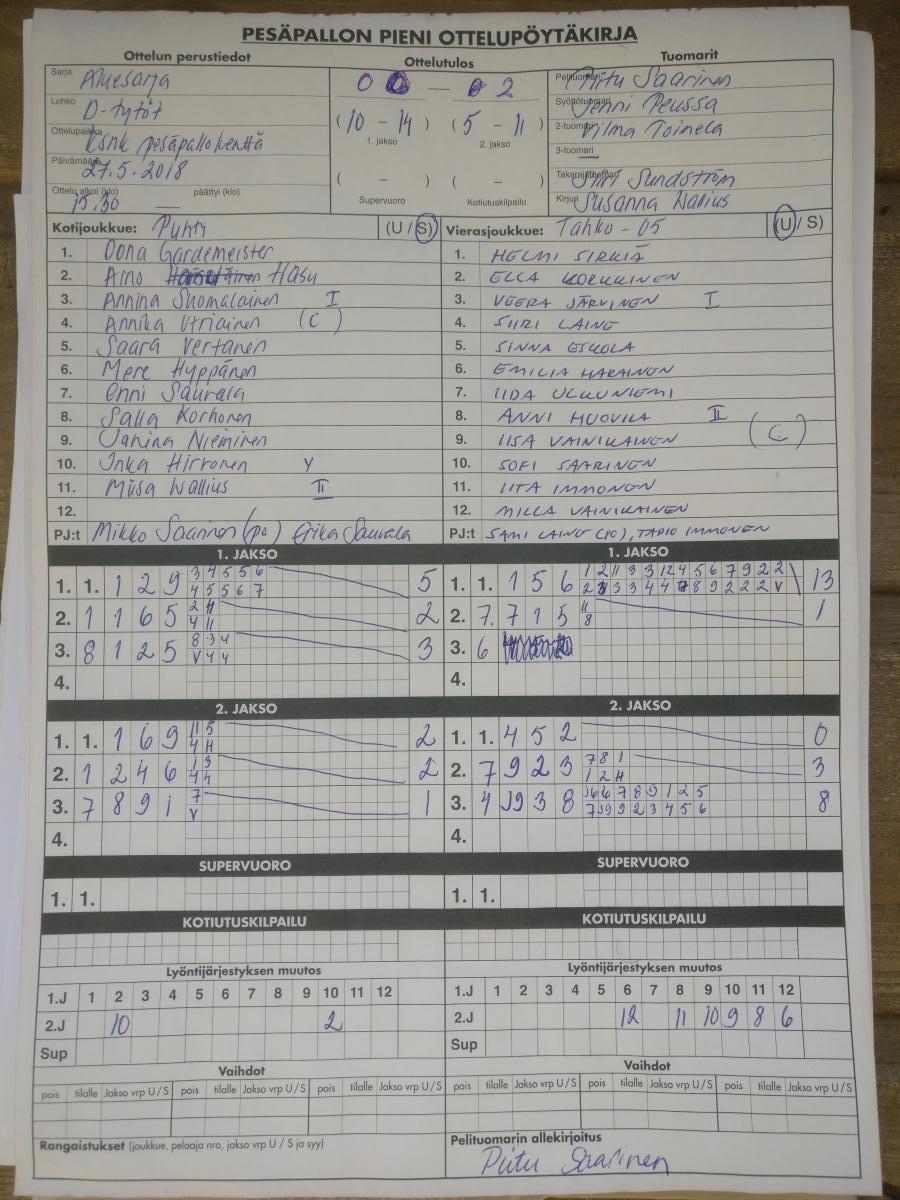 PESÄPALLON PIENI OTTELUPÖYTÄKIRJA
Ottelun perustiedot
Ottelutulos
Tuomarit
Sarja Aluesarja
Lohko D-tytöt
Ottelupaikka Ksnk pesäpallokenttä
Päivämäärä 27.5.2018
Ottelu alkoi (klo) 15.30 päättyi (klo) —
0 0 — 2
(10 - 14) (5 - 11)
1. jakso 2. jakso
( - ) ( - )
Supervuoro Kotiutuskilpailu
Pelituomari Piitu Saarinen
Syöttötuomari Jenni Peussa
2-tuomari Vilma Toimela
3-tuomari —
Takarajatuomari Siiri Sundström
Kirjuri Susanna Wallius
Kotijoukkue: Puhti (U / S)
1. Oona Gardemeister
2. Aino Hasu
3. Annina Suomalainen I
4. Annika Ytriainen (C)
5. Saara Vertanen
6. Mere Hyppänen
7. Enni Saurala
8. Salla Korhonen
9. Janina Nieminen
10. Inka Hirvonen Y
11. Miisa Wallius II
12.
PJ:t Mikko Saarinen (po) Erika Saurala
Vierasjoukkue: Tahko - 05 (U / S)
1. HELMI SIRKIÄ
2. ELLA KORKKINEN
3. VEERA JÄRVINEN I
4. SIIRI LAINE
5. SINNA ESKOLA
6. EMILIA HAKAINEN
7. IIDA ULKUNIEMI
8. ANNI HUOVILA II
9. IISA VAINIKAINEN (C)
10. SOFI SAARINEN
11. IITA IMMONEN
12. MILLA VAINIKAINEN
PJ:t SAMI LAINE (PO), TAPIO IMMONEN
1. JAKSO
1. 1. 1 2 9 3 4 5 5 6 5
4 5 5 6 7
2. 1 1 6 5 2 11 2
4 11
3. 8 1 2 5 8 3 4 3
V 4 4
4.
1. JAKSO
1. 1. 1 5 6 1 2 11 3 3 12 4 5 6 7 9 2 2 13
3 3 4 4 8 9 2 2 2 V
2. 7. 7 1 5 11 1
8
3. 6
4.
2. JAKSO
1. 1. 1 6 9 11 5 2
4 H
2. 1 2 4 6 1 3 2
4 4
3. 7 8 9 1 7 1
V
4.
2. JAKSO
1. 1. 4 5 2 0
2. 7 9 2 3 7 8 1 3
1 2 H
3. 4 J9 3 8 J6 6 7 8 9 1 2 5 8
7 J9 9 2 3 4 5 6
4.
SUPERVUORO
1. 1.
SUPERVUORO
1. 1.
KOTIUTUSKILPAILU
KOTIUTUSKILPAILU
Lyöntijärjestyksen muutos
1.J 1 2 3 4 5 6 7 8 9 10 11 12
2.J 10 2
Sup
Lyöntijärjestyksen muutos
1.J 1 2 3 4 5 6 7 8 9 10 11 12
2.J 12 11 10 9 8 6
Sup
Vaihdot
pois tilalle Jakso vrp U / S pois tilalle Jakso vrp U / S pois tilalle Jakso vrp U / S
Vaihdot
pois tilalle Jakso vrp U / S pois tilalle Jakso vrp U / S pois tilalle Jakso vrp U / S
Rangaistukset (joukkue, pelaaja nro, jakso vrp U / S ja syy)
Pelituomarin allekirjoitus
Piitu Saarinen